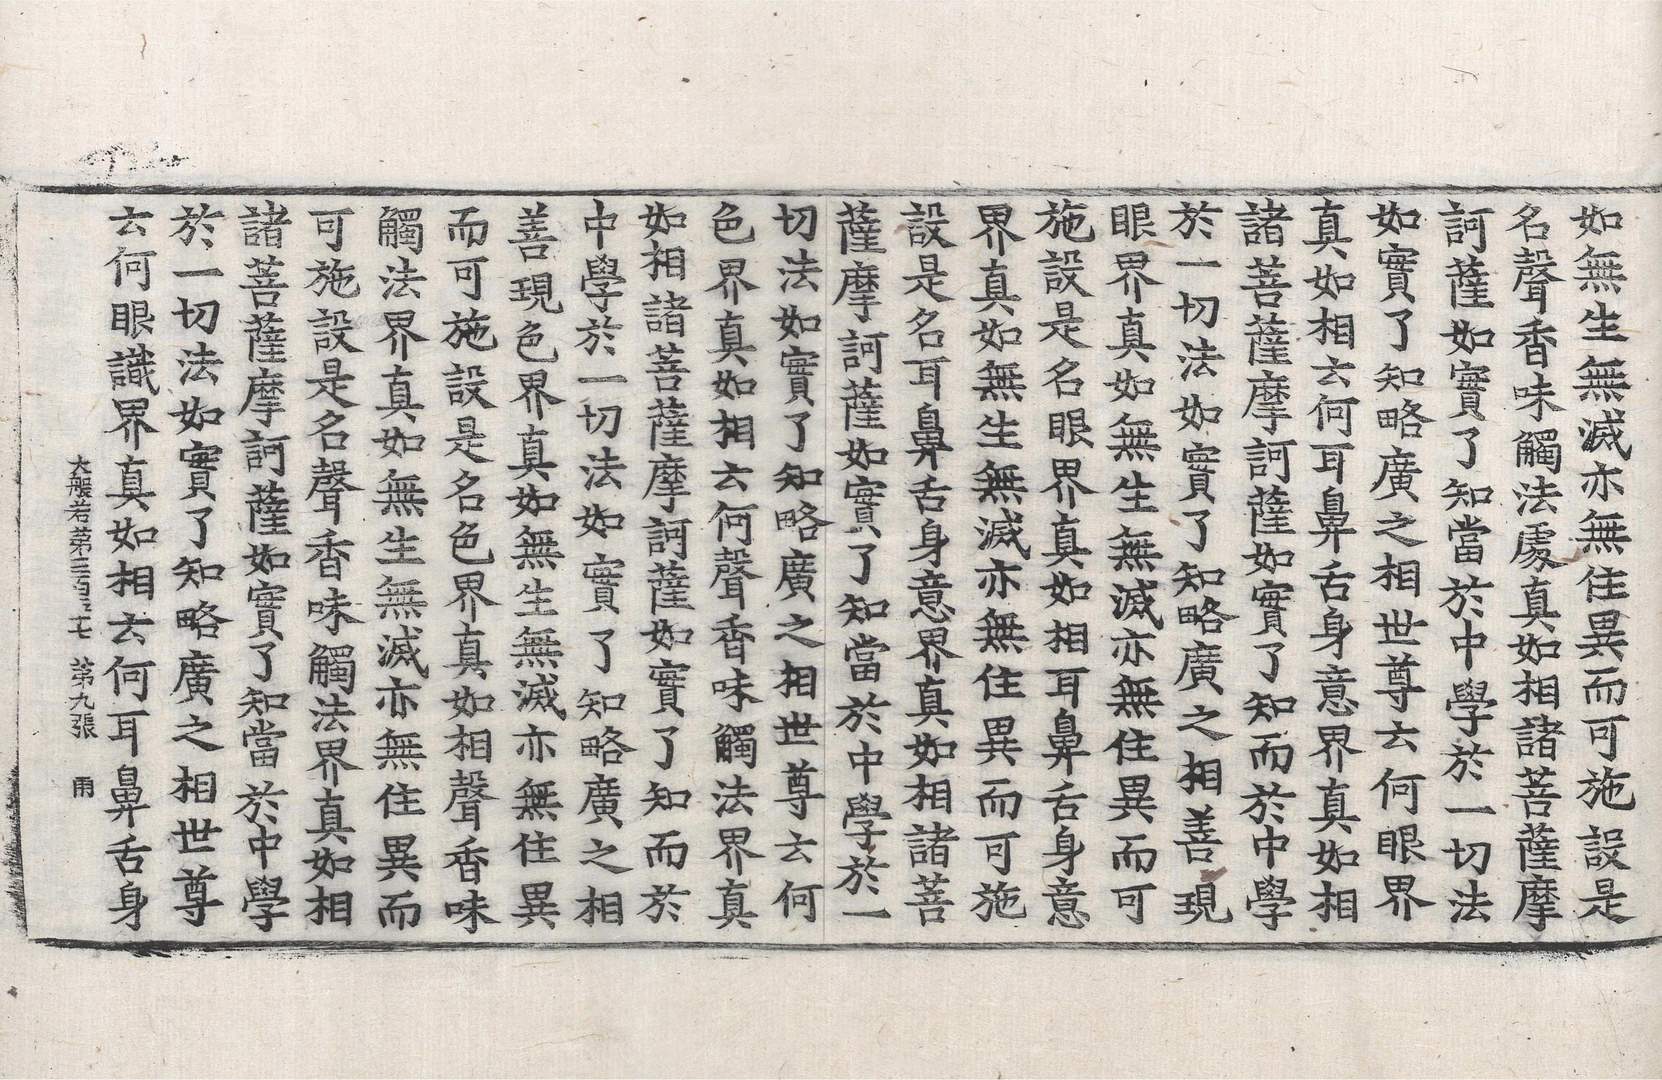 如無生無滅亦無住異而可施設是
名聲香味觸法處真如相諸菩薩摩
訶薩如實了知當於中學於一切法
如實了知略廣之相世尊云何眼界
真如相云何耳鼻舌身意界真如相
諸菩薩摩訶薩如實了知而於中學
於一切法如實了知略廣之相善現
眼界真如無生無滅亦無住異而可
施設是名眼界真如相耳鼻舌身意
界真如無生無滅亦無住異而可施
設是名耳鼻舌身意界真如相諸菩
薩摩訶薩如實了知當於中學於一
切法如實了知略廣之相世尊云何
色界真如相云何聲香味觸法界真
如相諸菩薩摩訶薩如實了知而於
中學於一切法如實了知略廣之相
善現色界真如無生無滅亦無住異
而可施設是名色界真如相聲香味
觸法界真如無生無滅亦無住異而
可施設是名聲香味觸法界真如相
諸菩薩摩訶薩如實了知當於中學
於一切法如實了知略廣之相世尊
云何眼識界真如相云何耳鼻舌身
大般若第三百五十七 第九張 雨